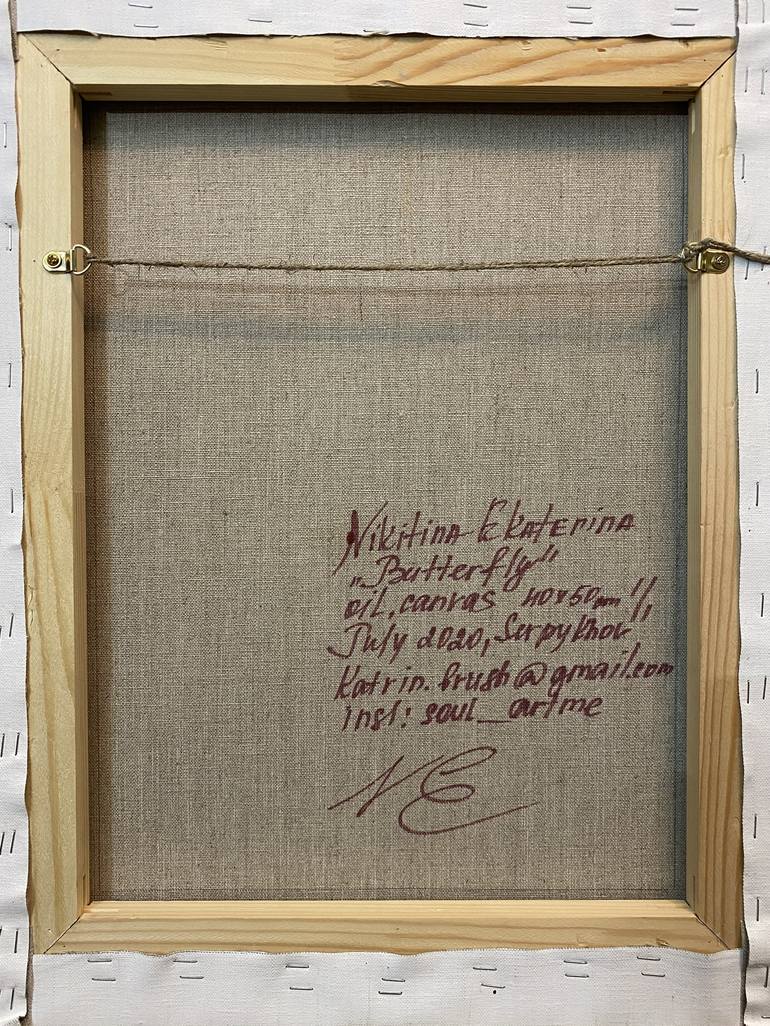 Nikitina Ekaterina
„Butterfly"
oil, canvas 40x50
July 2020, Serpykhov
Katrin.brush@gmail.com
inst: soul_artme
NE